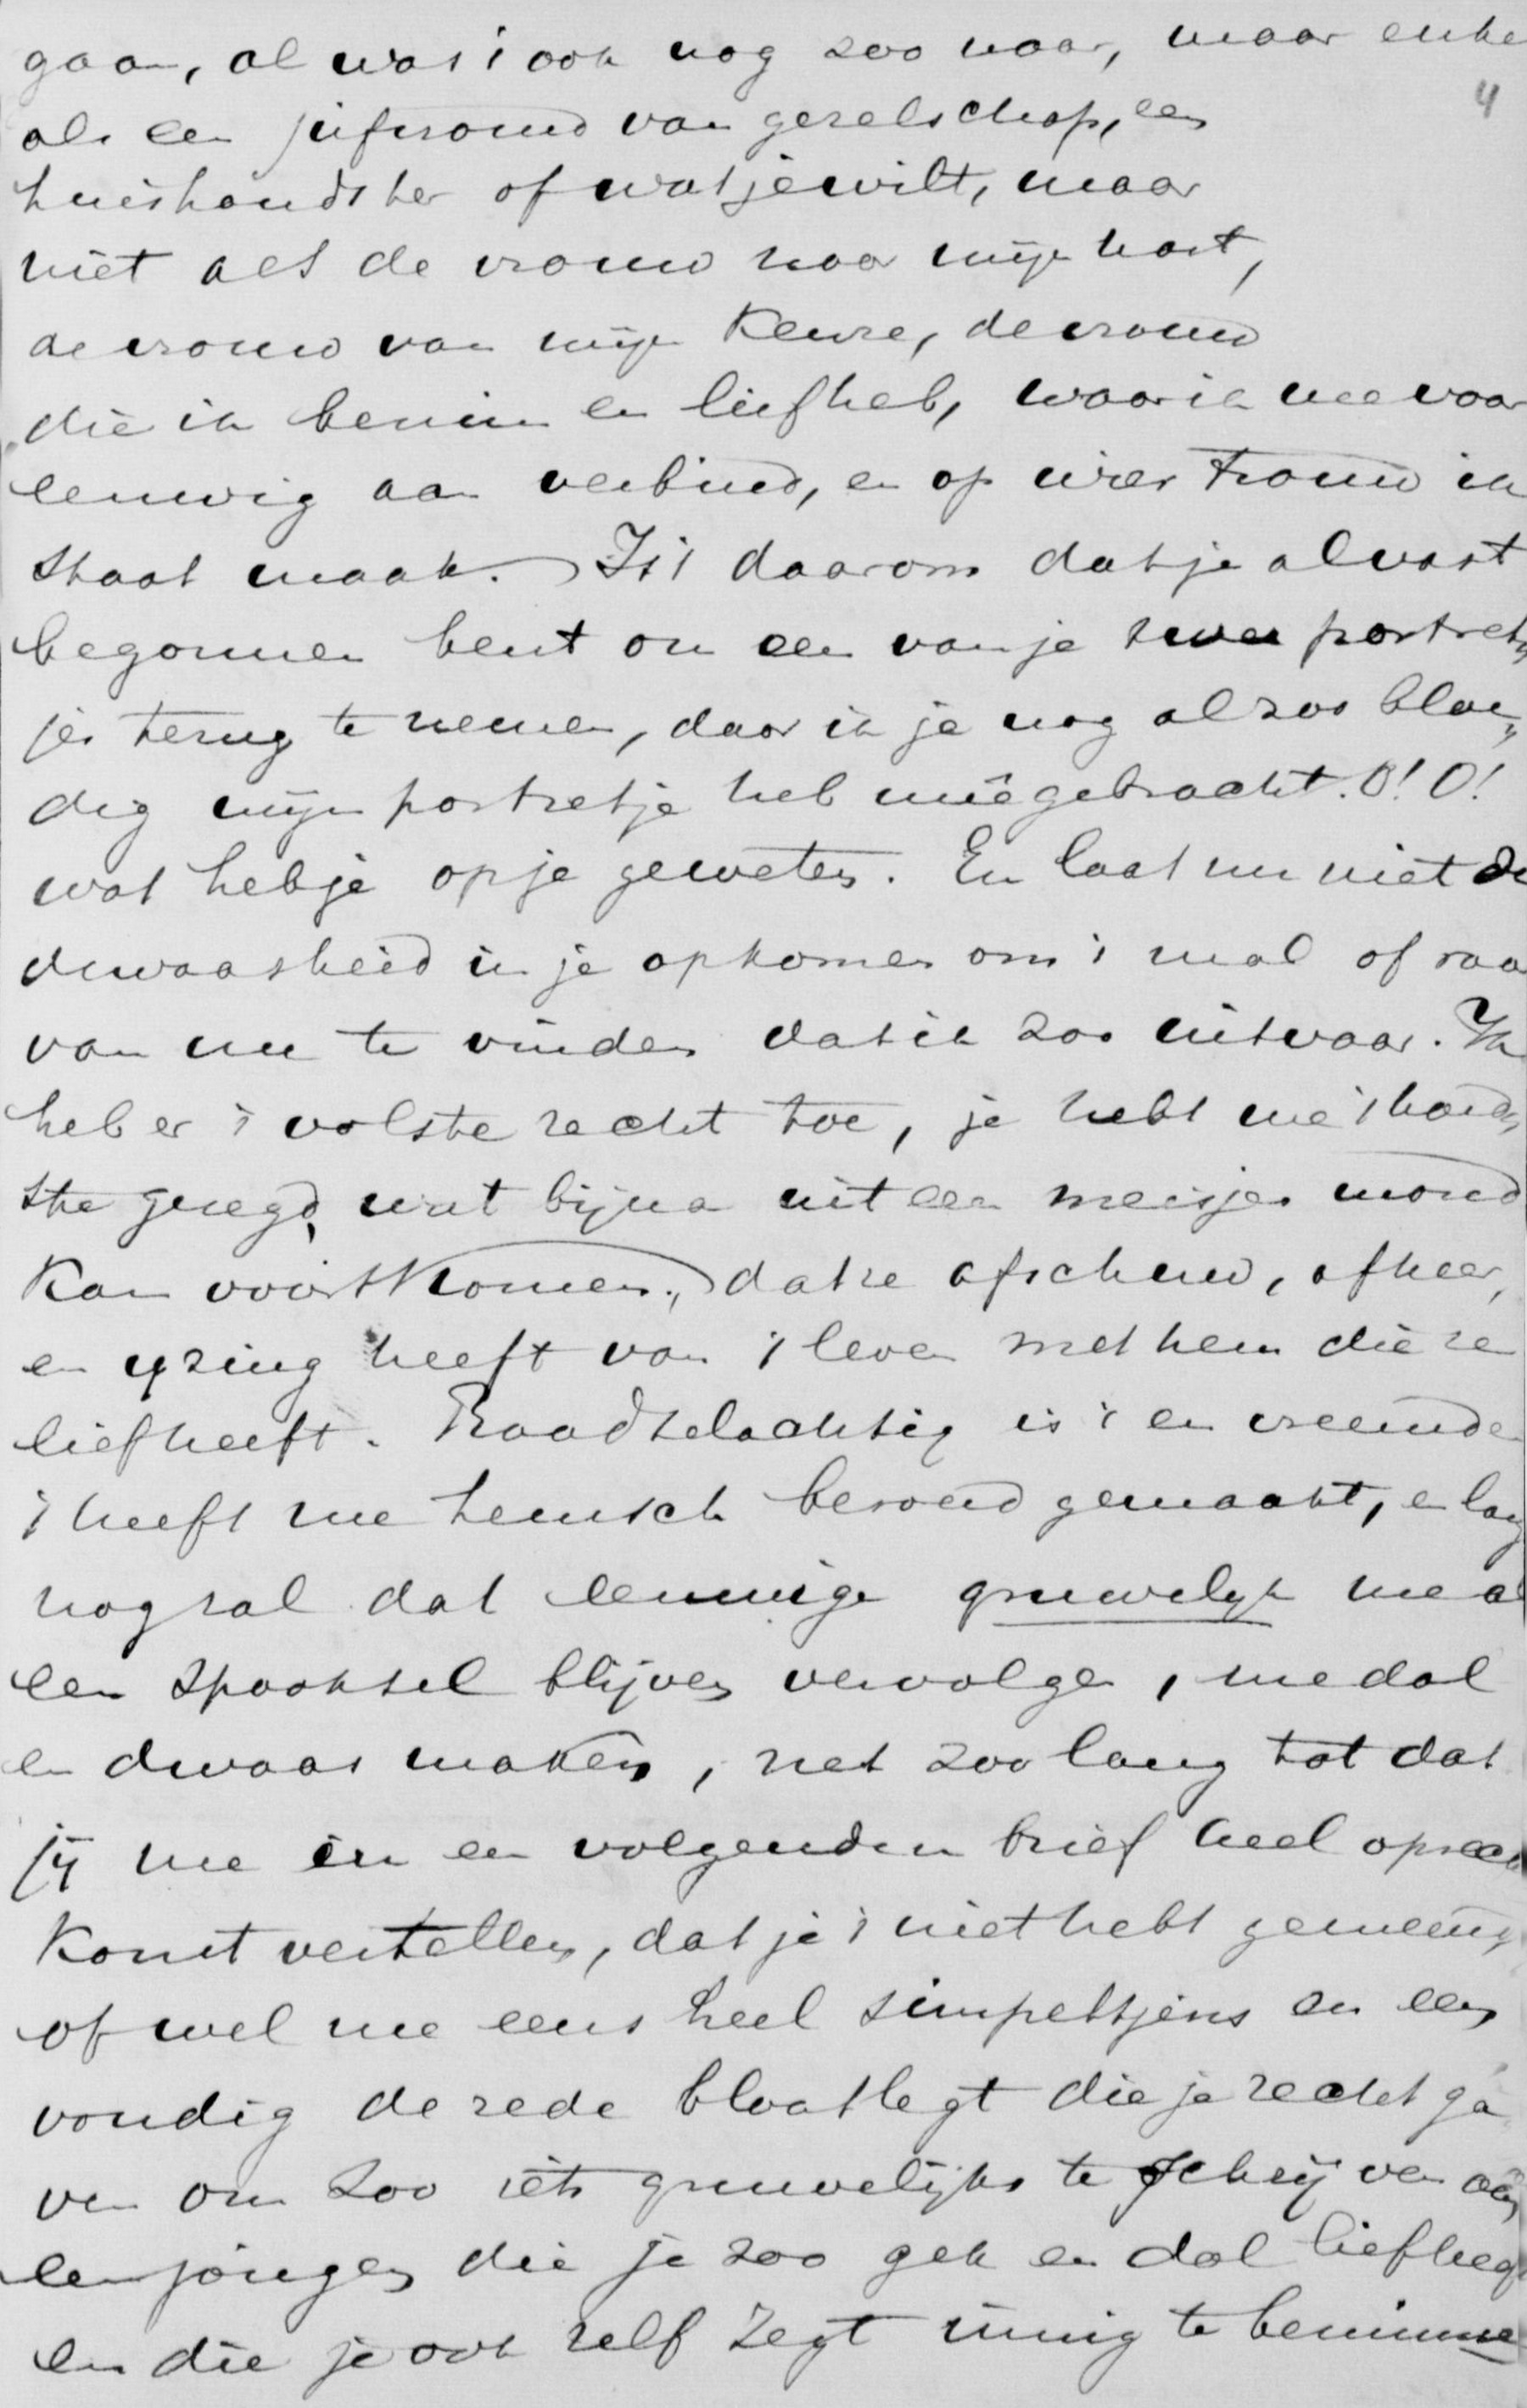 gaan, al was 't ook nog zoo naar, maar enke
4
als een jufvrouw van gezelschap, een
huishoudster of wat je wilt, maar
niet als de vrouw naar mijn hart,
de vrouw van mijn keuze, de vrouw
die ik bemin en liefheb, waar ik me voor
eeuwig aan verbind, en op wier trouw ik
staat maak. Is 't daarom dat je alvast
begonnen bent om een van je twee portret„
jes terug te nemen, daar ik je nog al zoo bloe„
dig mijn portretje heb meêgebracht. O! O!
wat heb je op je geweten. En laat nu niet de
dwaasheid in je opkomen om 't mal of raa
van me te vinden dat ik zoo uitvaar. Ik
heb er 't volste recht toe, je hebt me 't hard„
ste gezegd, wat bijna uit een meisjes mond
kan voortkomen, dat ze afschuw, afkeer,
en yzing heeft van 't leven met hem die ze
liefheeft. Raadselachtig is 't en vreemd en
't heeft me heusch beroerd gemaakt, en lang
nog zal dat eeuwige gruwelyk me a
een spooksel blijven vervolgen, me dol
en dwaas maken, net zoo lang tot dat
jij me in een volgenden brief heel oprech
komt vertellen, dat je 't niet hebt gemeend,
of wel me eens heel simpeltjens en een„
voudig de rede blootlegt die je recht ga
ven om zoo iets gruwelijks te schrijven aan
een jongen die je zoo gek en dol liefheeft
en die je ook zelf zegt innig te beminne